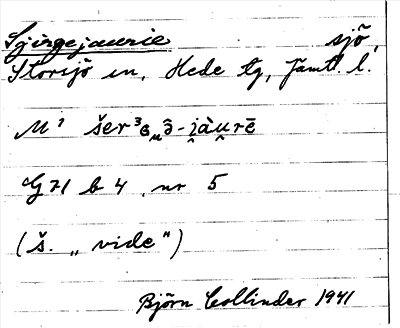 Sjirgejaurie sjö,
Storsjö sn, Hede tg, Jämtl. l.
M¹ šer³ -jàu̯rē
G 71 b 4 nr 5
(š. „vide")
Björn Collinder 1941